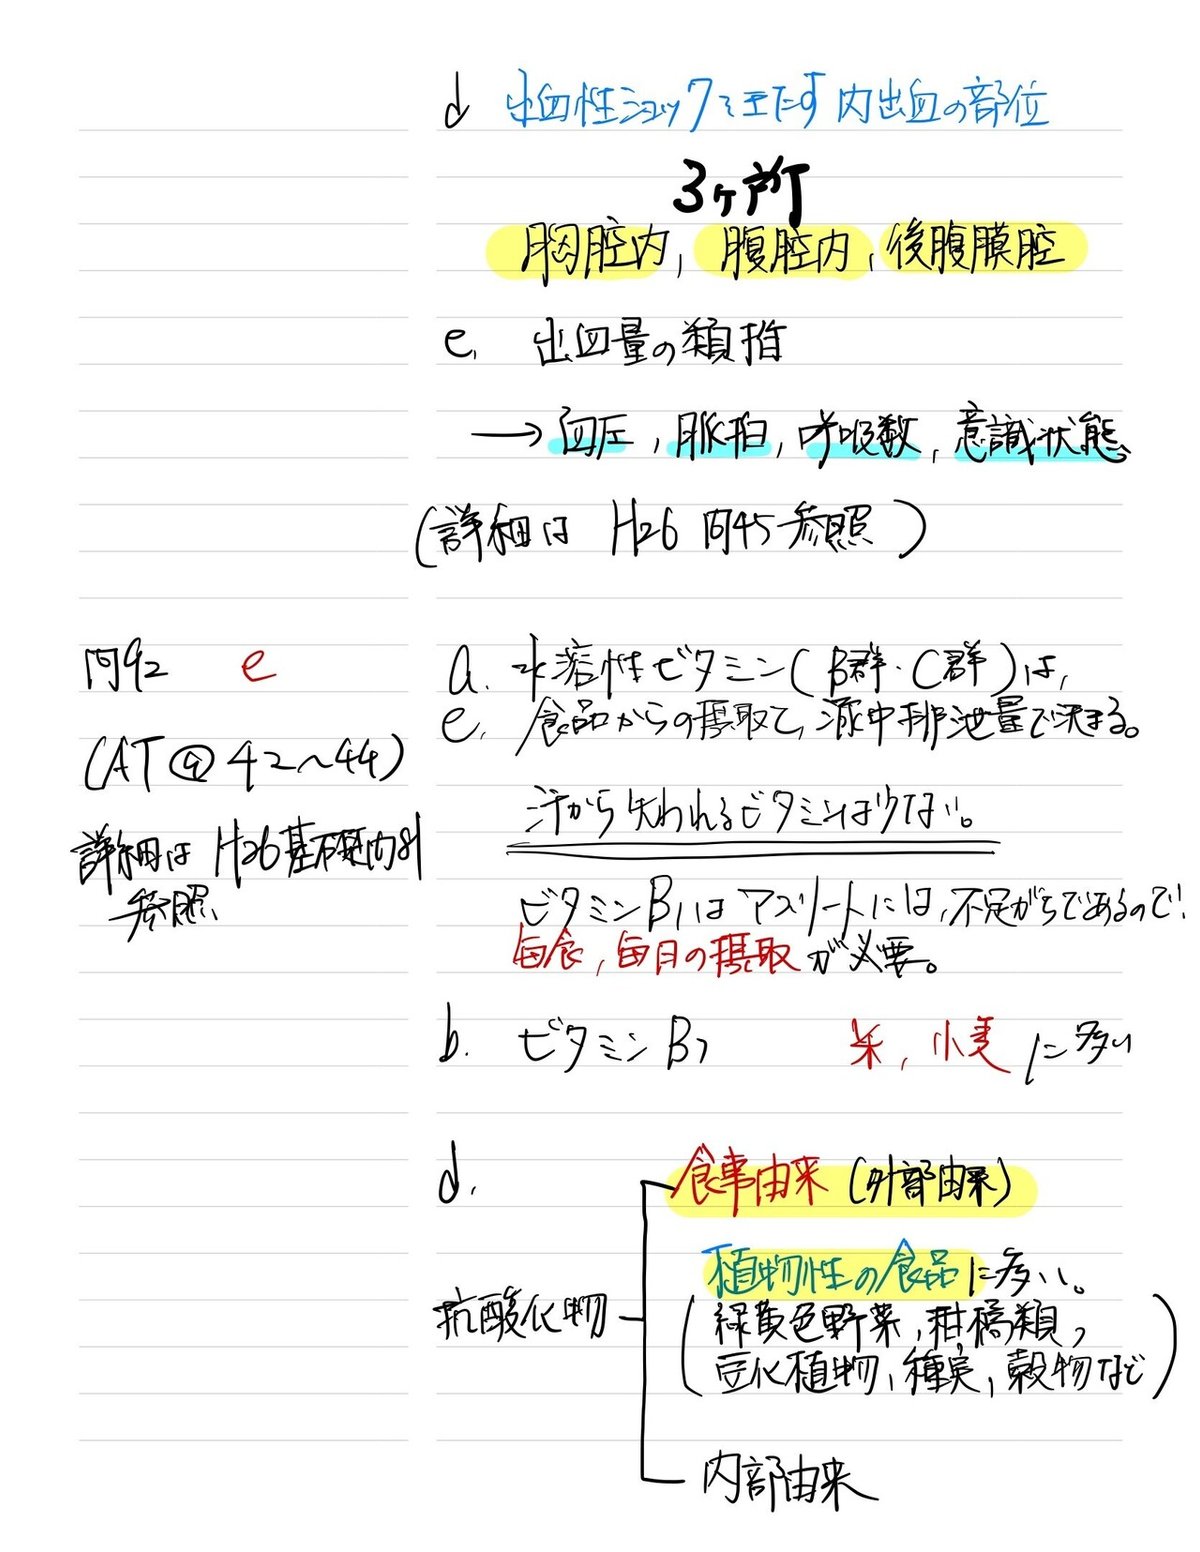 d 出血性ショックをきたす内出血の部位
3ヶ所
胸腔内, 腹腔内, 後腹膜腔
e. 出血量の類推
→血圧, 脈拍, 呼吸数, 意識状態
(詳細は H26 問45参照)
問92 e
(AT④ 42〜44)
詳細は H26基礎問81
参照.
a. 水溶性ビタミン(B群・C群)は,
e. 食品からの摂取と, 尿中排泄量で決まる。
汗から失われるビタミンは少ない。
ビタミンB1はアスリートには, 不足がちであるので,
毎食, 毎日の摂取が必要。
b. ビタミン 米, 小麦に多い
d.
抗酸化物
食事由来 (外部由来)
植物性の食品に多い。
(緑黄色野菜, 柑橘類,
豆化植物, 種実, 穀物など)
内部由来